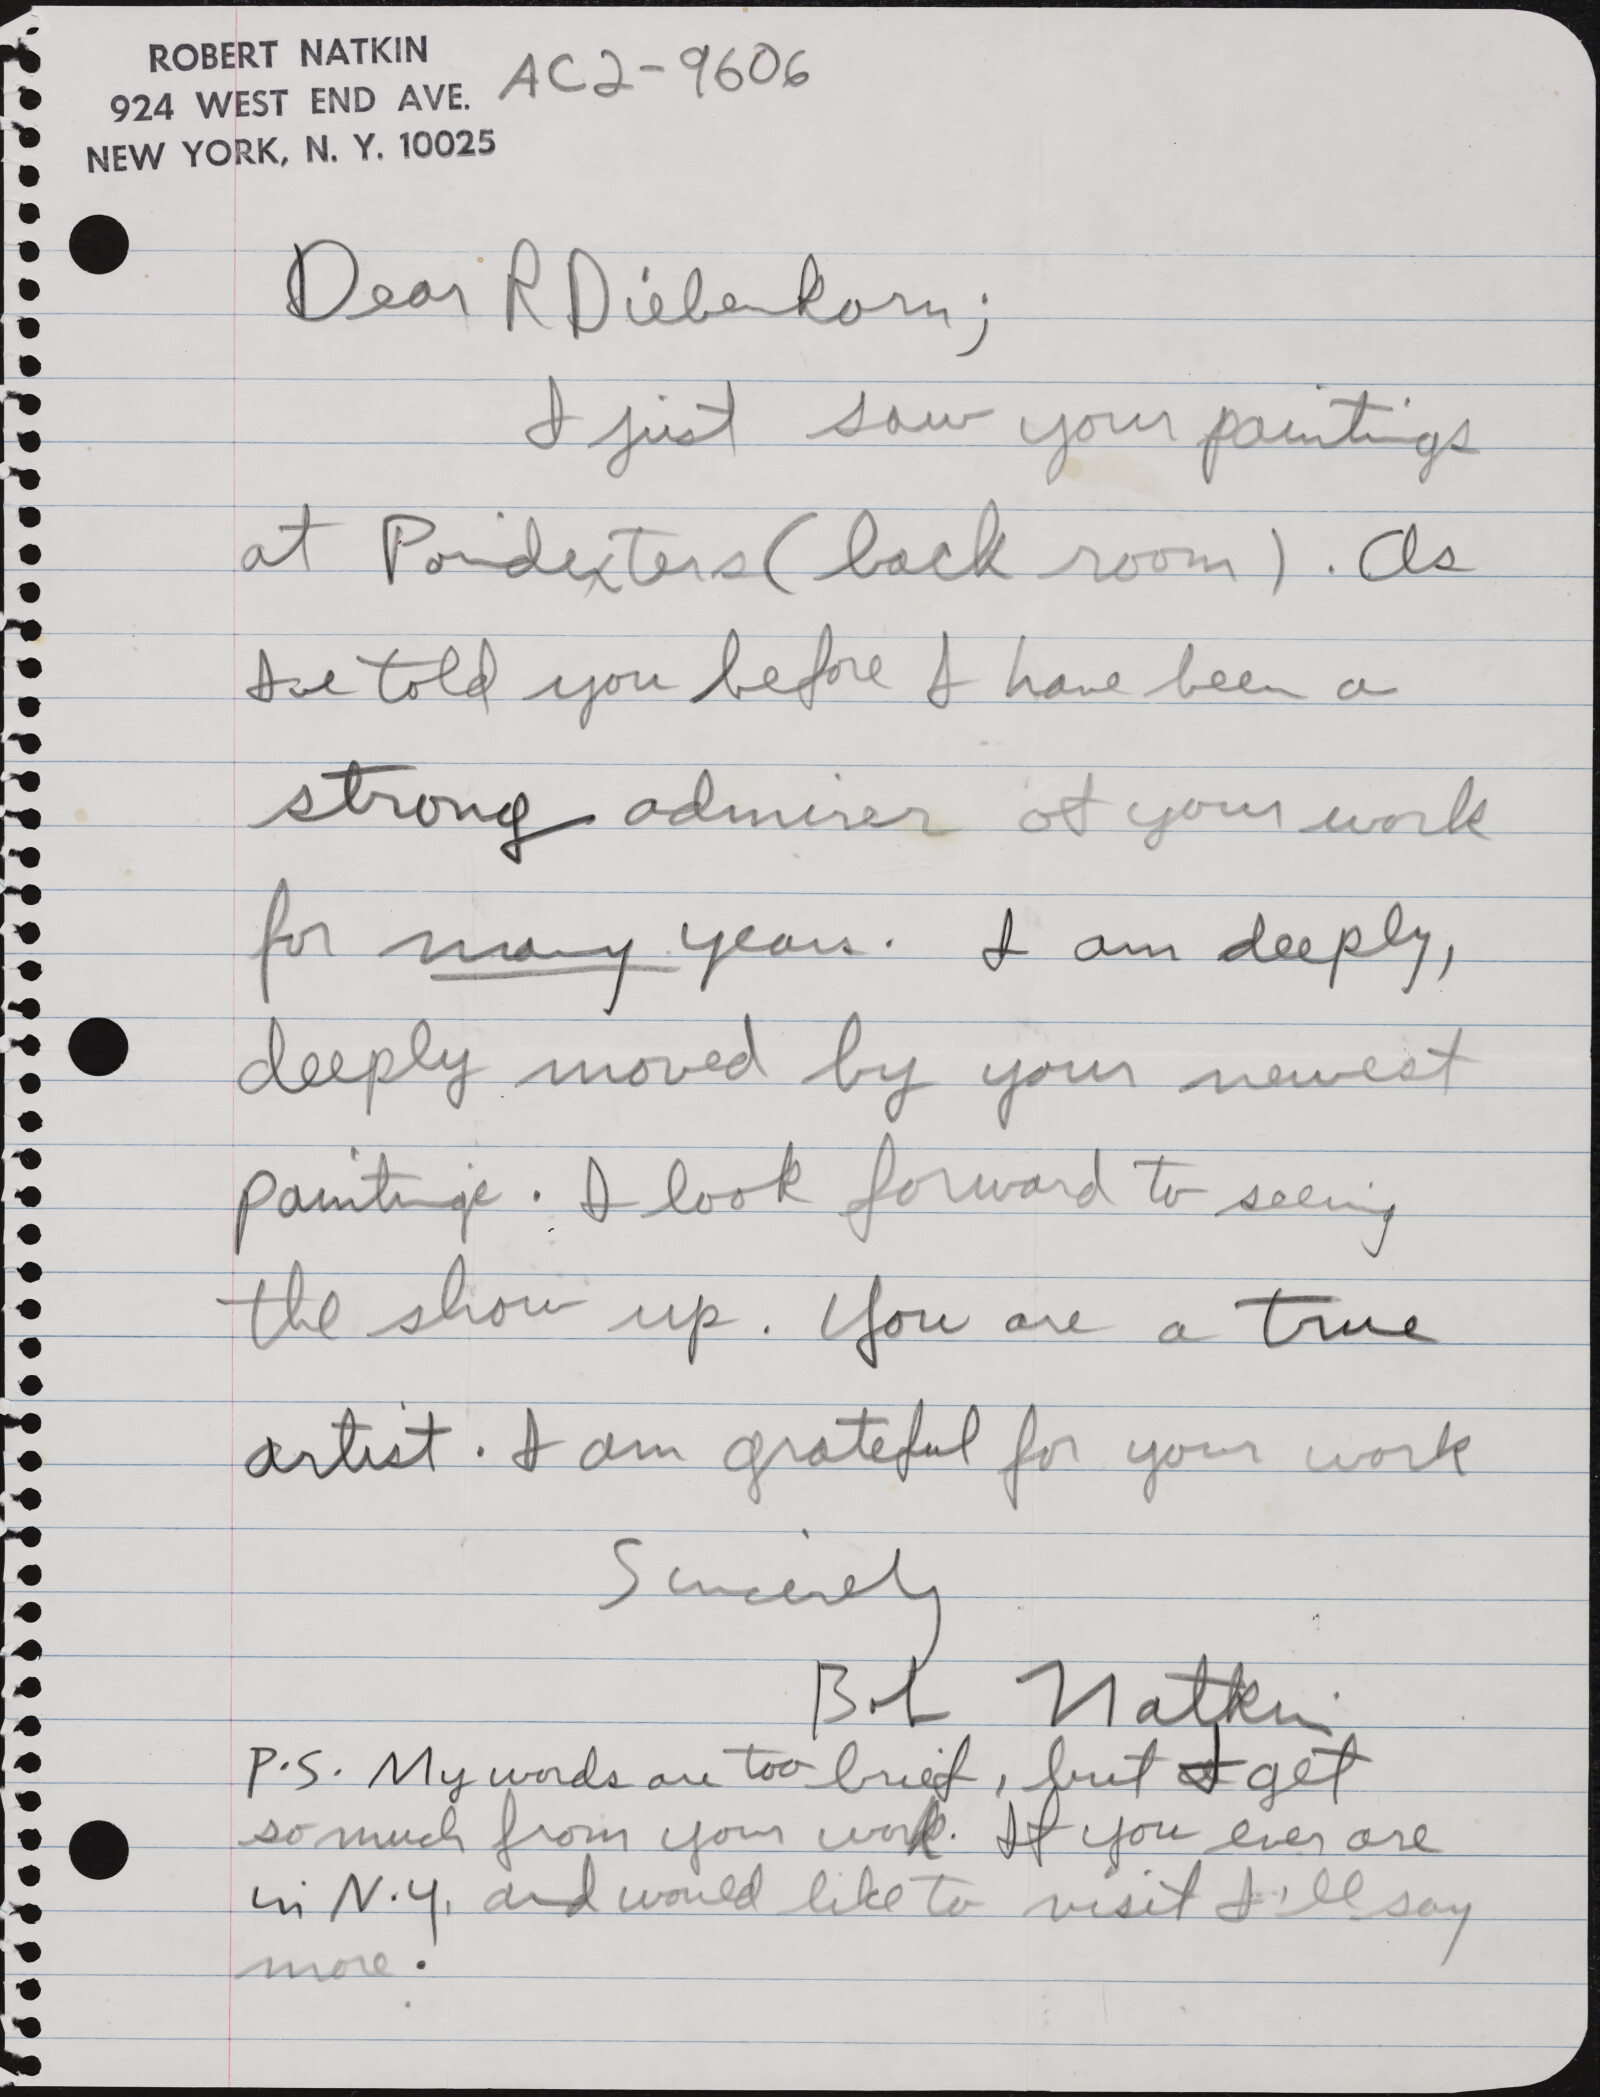 ROBERT NATKIN
924 WEST END AVE.
NEW YORK, N. Y. 10025
AC2-9606
Dear R Diebenkorn;
I just saw your paintings
at Poindexters (back room). As
Ive told you before I have been a
strong admirer of your work
for many years. I am deeply,
deeply moved by your newest
paintings. I look forward to seeing
the show up. You are a true
artist. I am grateful for your work
Sincerely
Bob Natkin
P.S. My words are too brief, but I get
so much from your work. If you ever are
in N.Y. and would like to visit I'll say
more.